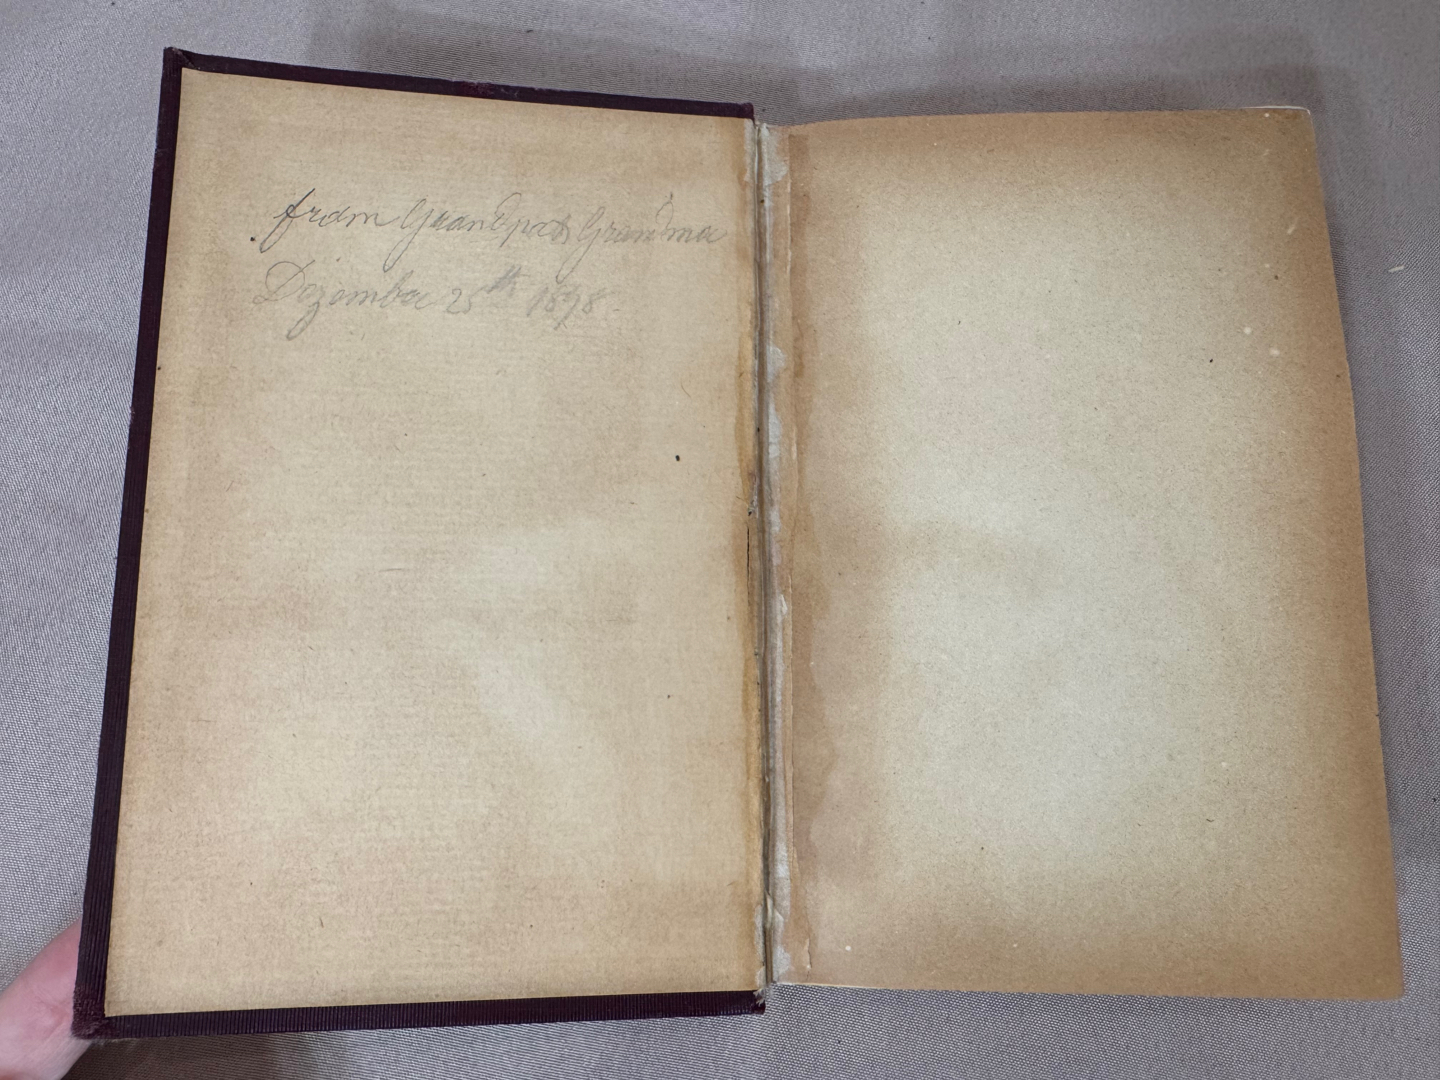 from Grandpa & Grandma
Dezember 25th 1898.